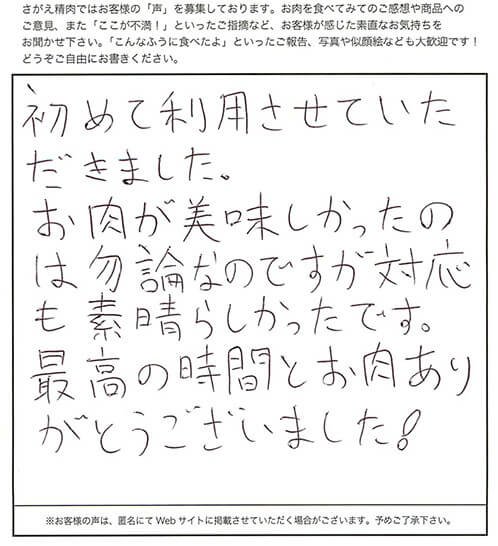 さがえ精肉ではお客様の「声」を募集しております。お肉を食べてみてのご感想や商品への
ご意見、また「ここが不満!」といったご指摘など、お客様が感じた素直なお気持ちを
お聞かせ下さい。「こんなふうに食べたよ」といったご報告、写真や似顔絵なども大歓迎です!
どうぞご自由にお書きください。
初めて利用させていた
だきました。
お肉が美味しかったの
は勿論なのですが対応
も素晴らしかったです。
最高の時間とお肉あり
がとうございました!
※お客様の声は、匿名にてWebサイトに掲載させていただく場合がございます。予めご了承下さい。